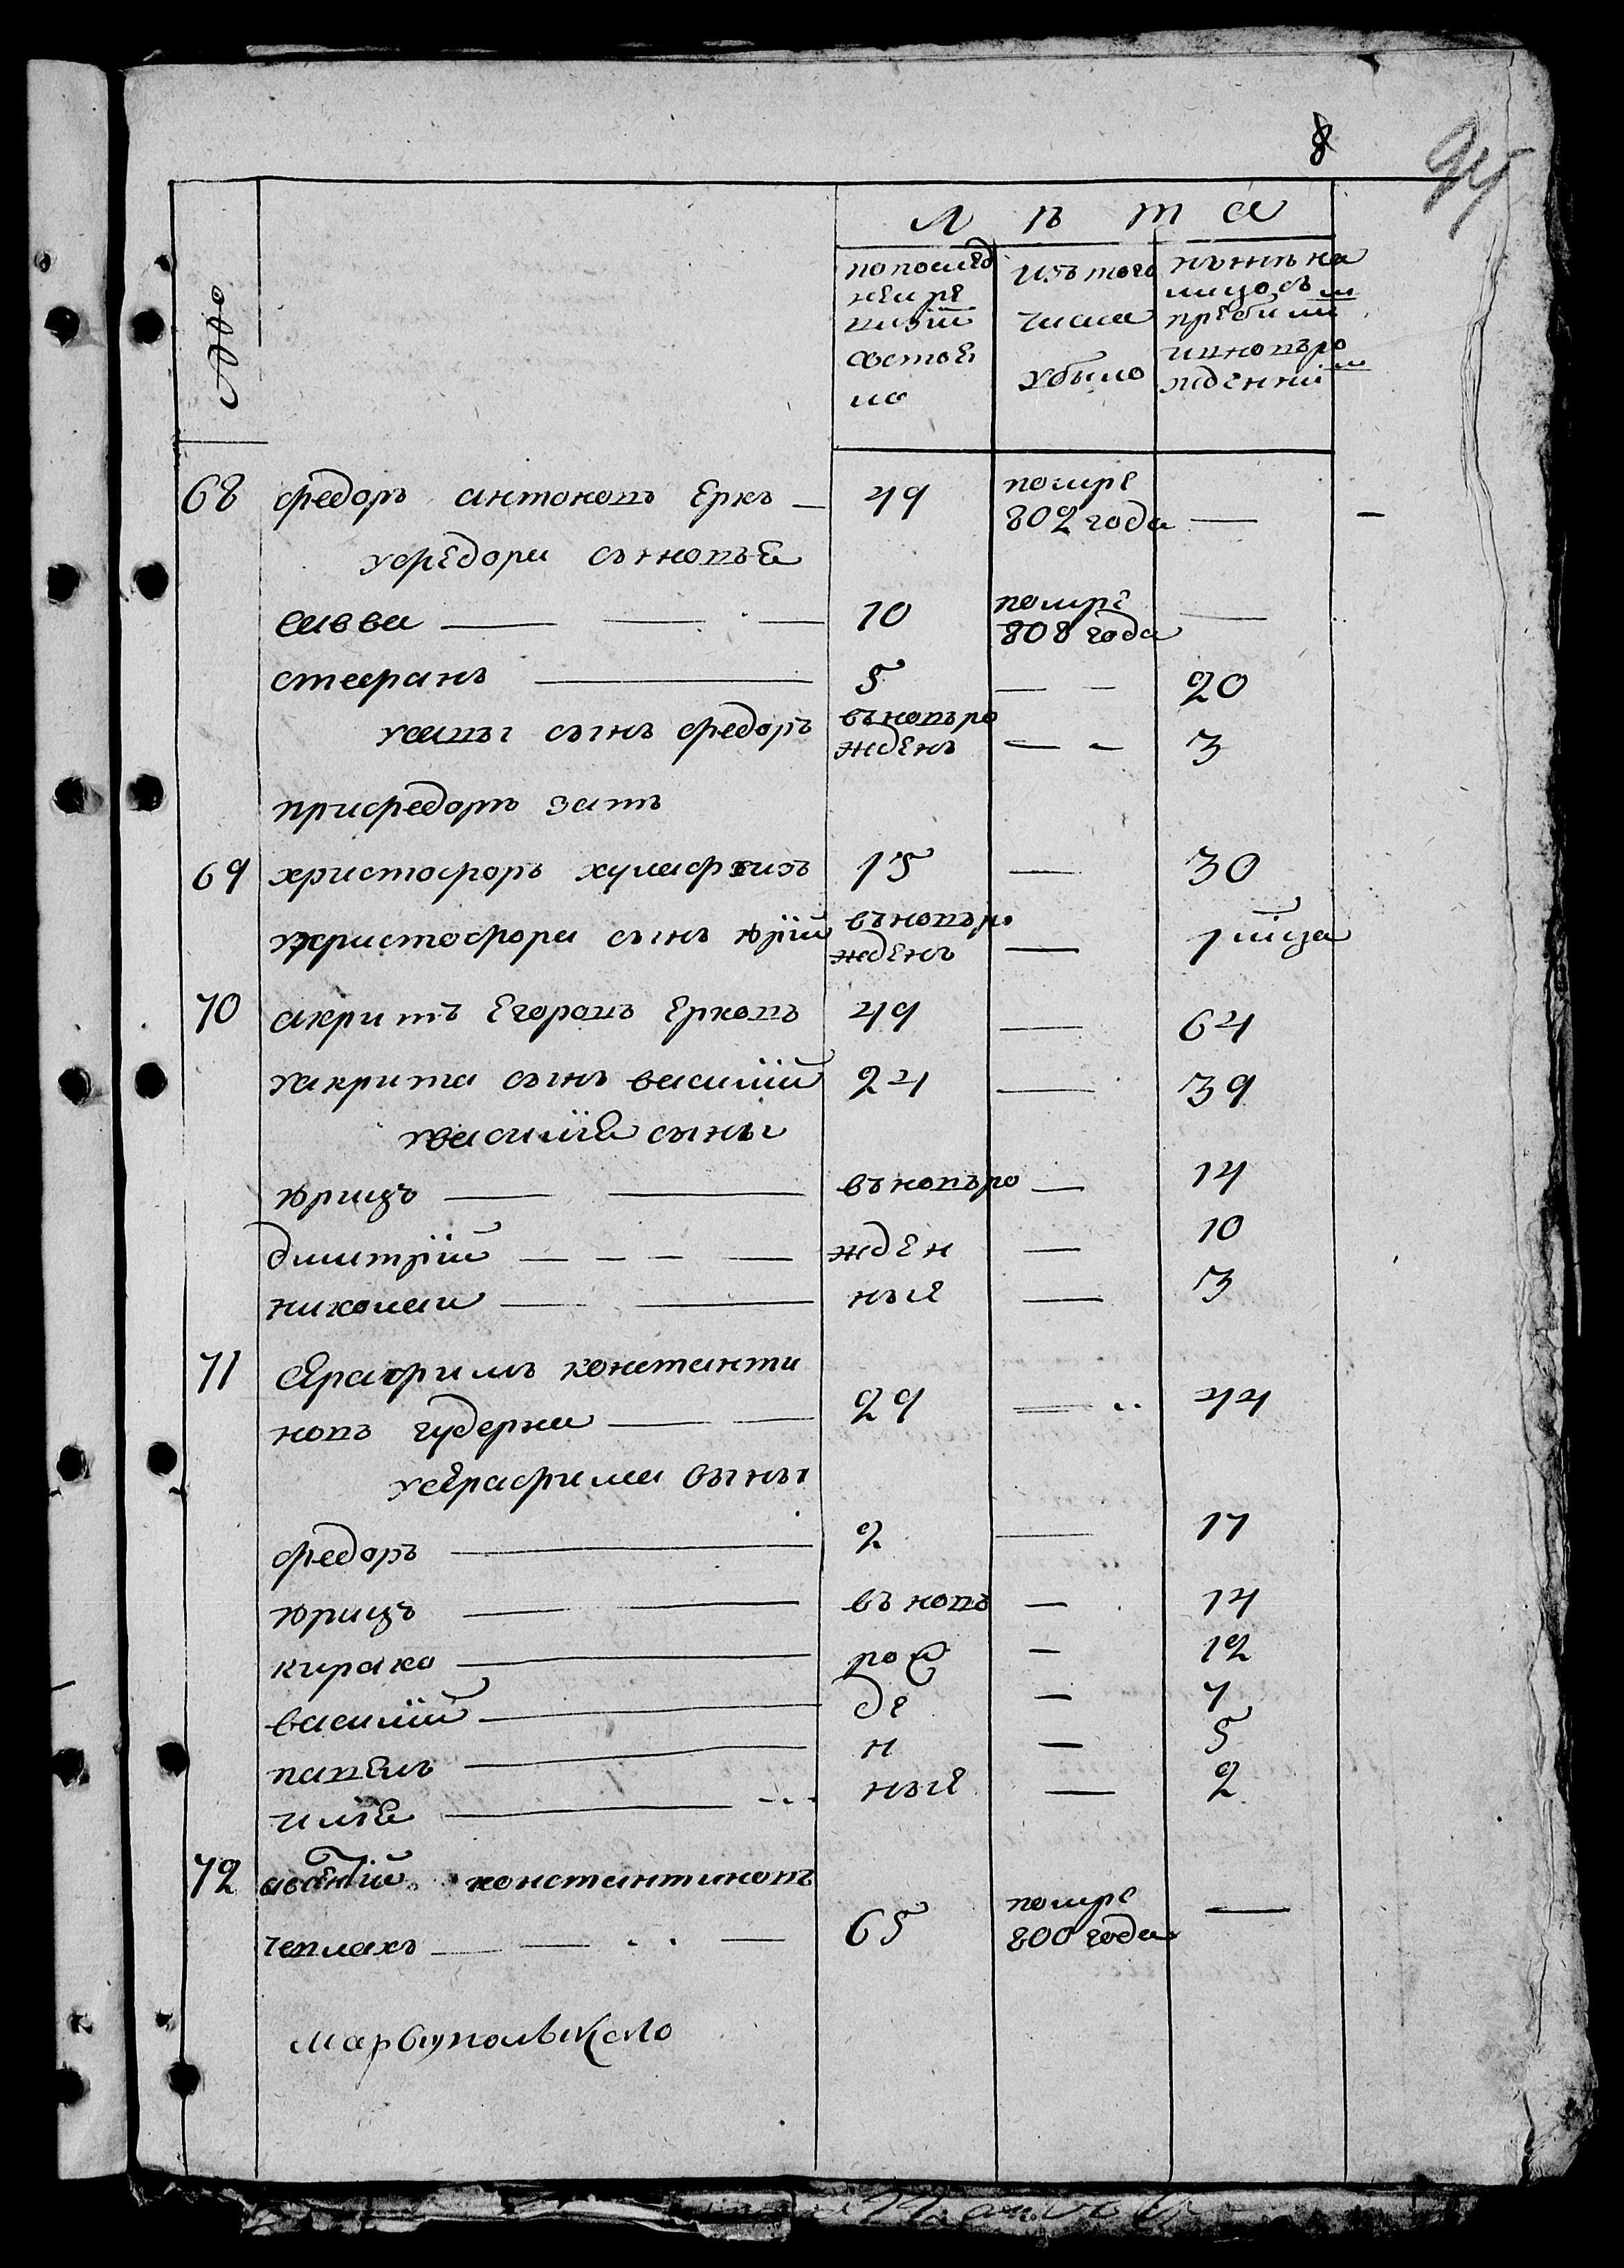 8
94
Л ѣ т а
№
по послѣд
ней ре
визіи
состоя
ло
изъ того
числа
убыло
нынѣ на
лицо съ
прибылы
и новоро
жденны
68 федоръ антоновъ Еркъ — 49 помре
802 года —
у федора сыновья
савва — 10 помре
808 года —
стефанъ — 5 — 20
у савы сынъ федоръ въновьро
жденъ — 3
при федоръ зать
69 христофоръ хулафхизъ 15 — 30
у христофора сынъ юрій въновьро
жденъ — 1 мица
70 акритъ Егоровъ Ерковъ 49 — 64
у акрита сынъ василій 24 — 39
у василія сыны
юрицъ — въновьро — 14
дмитрій — жден — 10
николаи — ныя — 3
71 Серафимъ константи
новъ гудержа — 29 — 44
у серафима сыны
федоръ — 2 — 17
юрицъ — въ новъ — 14
кирако — рож — 12
василій — де — 7
павелъ — н — 5
илья — ныя — 2
72 авентій константиновъ
чеплахъ — 65 помре
800 года —
Марбупольскаго